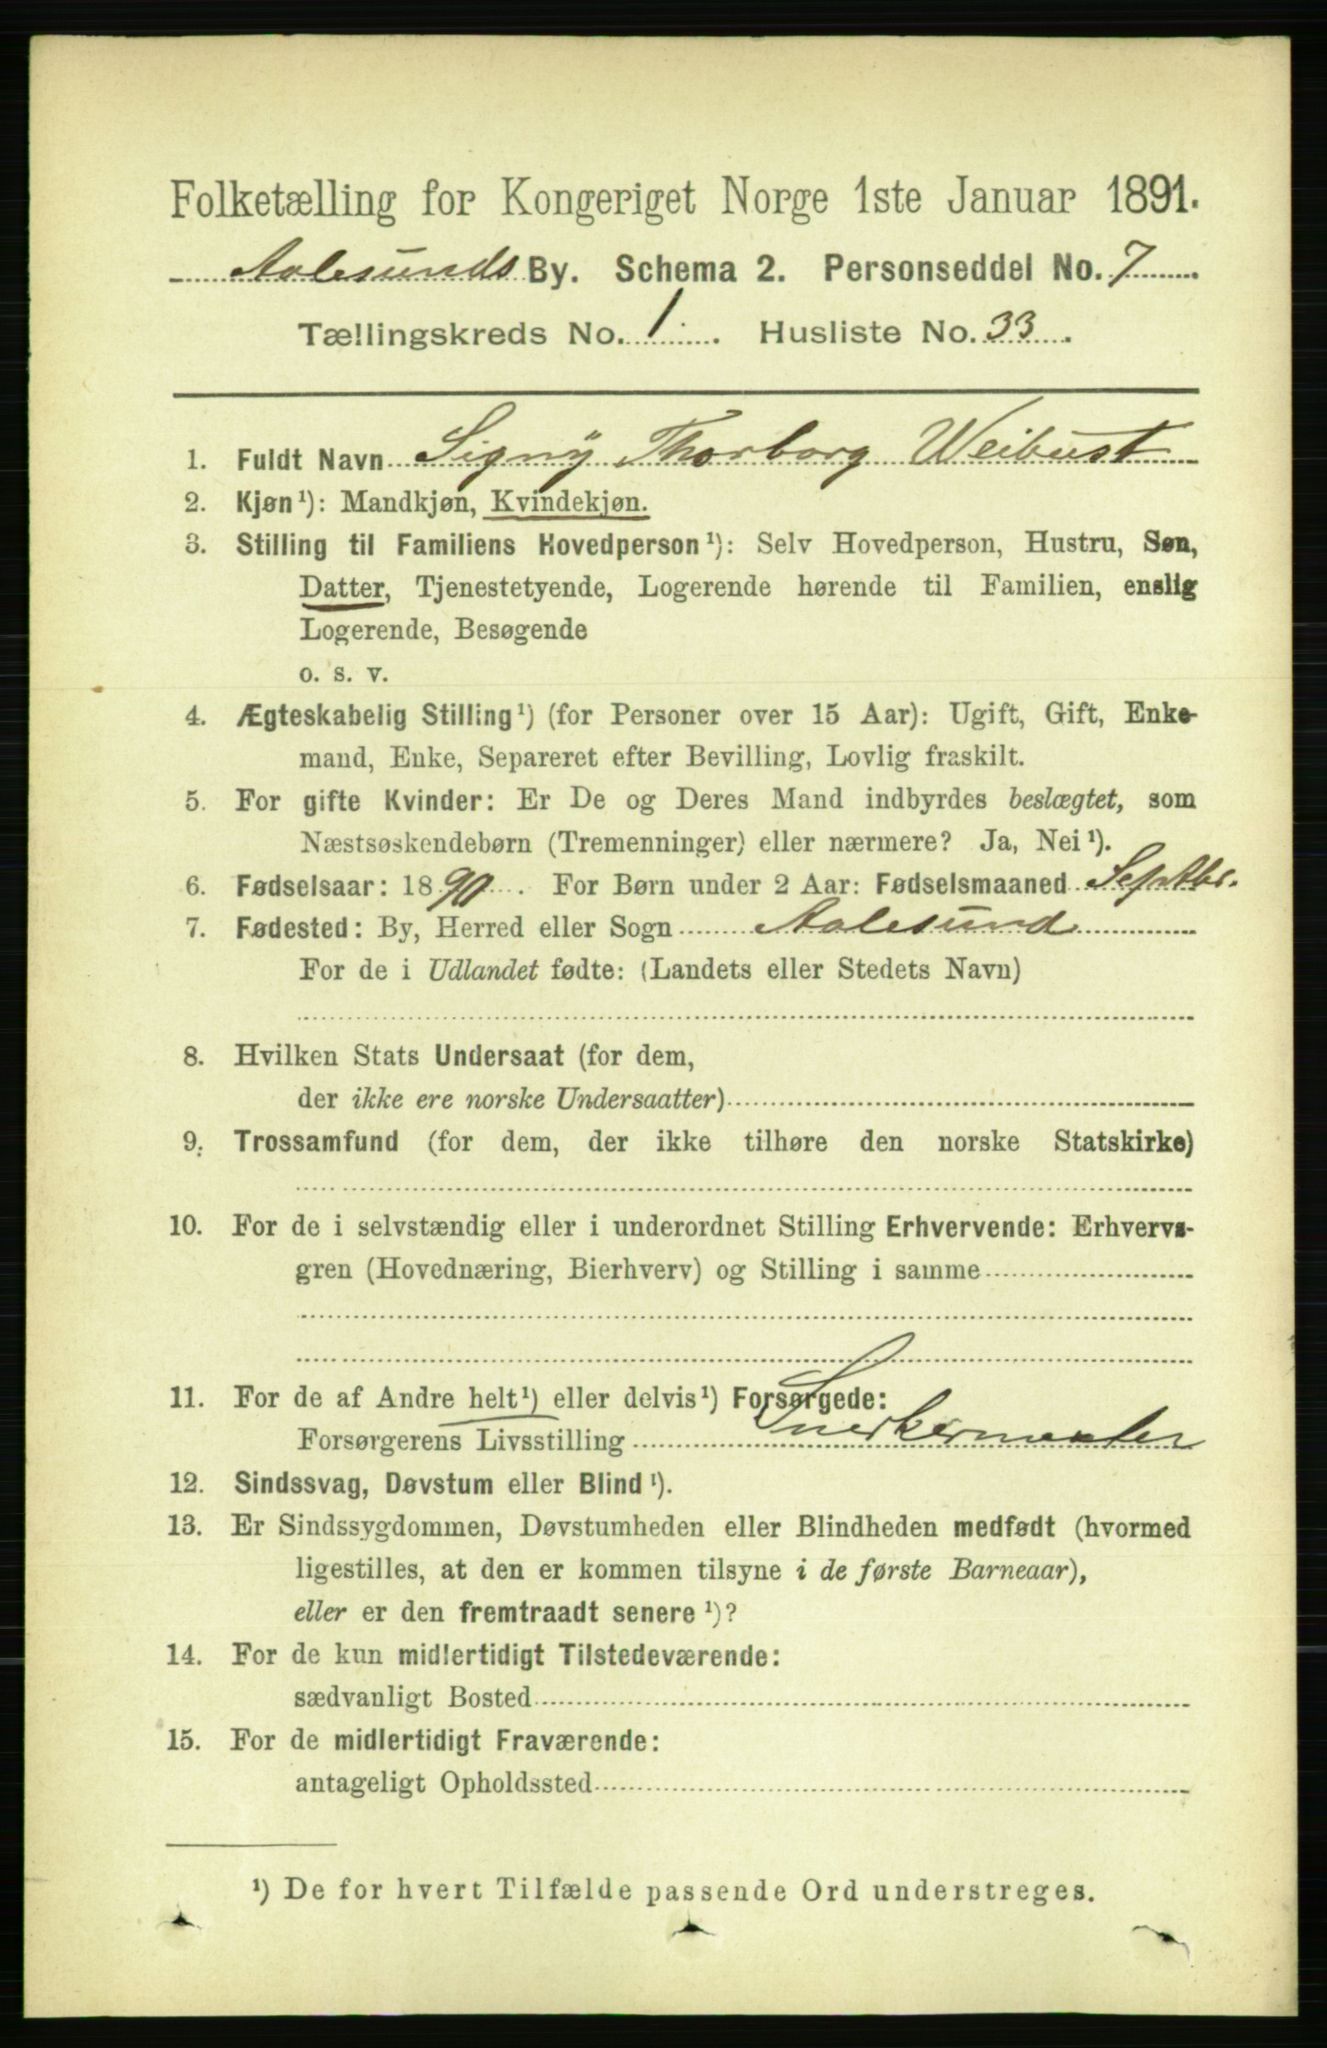 Folketælling for Kongeriget Norge 1ste Januar 1891.
Aalesunds By. Schema 2. Personseddel No. 7
Tællingskreds No. 1. Husliste No. 33.
1. Fuldt Navn Signy Thorborg Weibust
2. Kjøn¹): Mandkjøn, Kvindekjøn.
3. Stilling til Familiens Hovedperson¹): Selv Hovedperson, Hustru, Søn,
Datter, Tjenestetyende, Logerende hørende til Familien, enslig
Logerende, Besøgende
o. s. v.
4. Ægteskabelig Stilling¹) (for Personer over 15 Aar): Ugift, Gift, Enke-
mand, Enke, Separeret efter Bevilling, Lovlig fraskilt.
5. For gifte Kvinder: Er De og Deres Mand indbyrdes beslægtet, som
Næstsøskendebørn (Tremenninger) eller nærmere? Ja, Nei¹).
6. Fødselsaar: 1890. For Børn under 2 Aar: Fødselsmaaned Septbr.
7. Fødested: By, Herred eller Sogn Aalesund
For de i Udlandet fødte: (Landets eller Stedets Navn)
8. Hvilken Stats Undersaat (for dem,
der ikke ere norske Undersaatter)
9. Trossamfund (for dem, der ikke tilhøre den norske Statskirke)
10. For de i selvstændig eller i underordnet Stilling Erhvervende: Erhvervs-
gren (Hovednæring, Bierhverv) og Stilling i samme
11. For de af Andre helt¹) eller delvis¹) Forsørgede:
Forsørgerens Livsstilling Snerkermester
12. Sindssvag, Døvstum eller Blind¹).
13. Er Sindssygdommen, Døvstumheden eller Blindheden medfødt (hvormed
ligestilles, at den er kommen tilsyne i de første Barneaar),
eller er den fremtraadt senere¹)?
14. For de kun midlertidigt Tilstedeværende:
sædvanligt Bosted
15. For de midlertidigt Fraværende:
antageligt Opholdssted
¹) De for hvert Tilfælde passende Ord understreges.